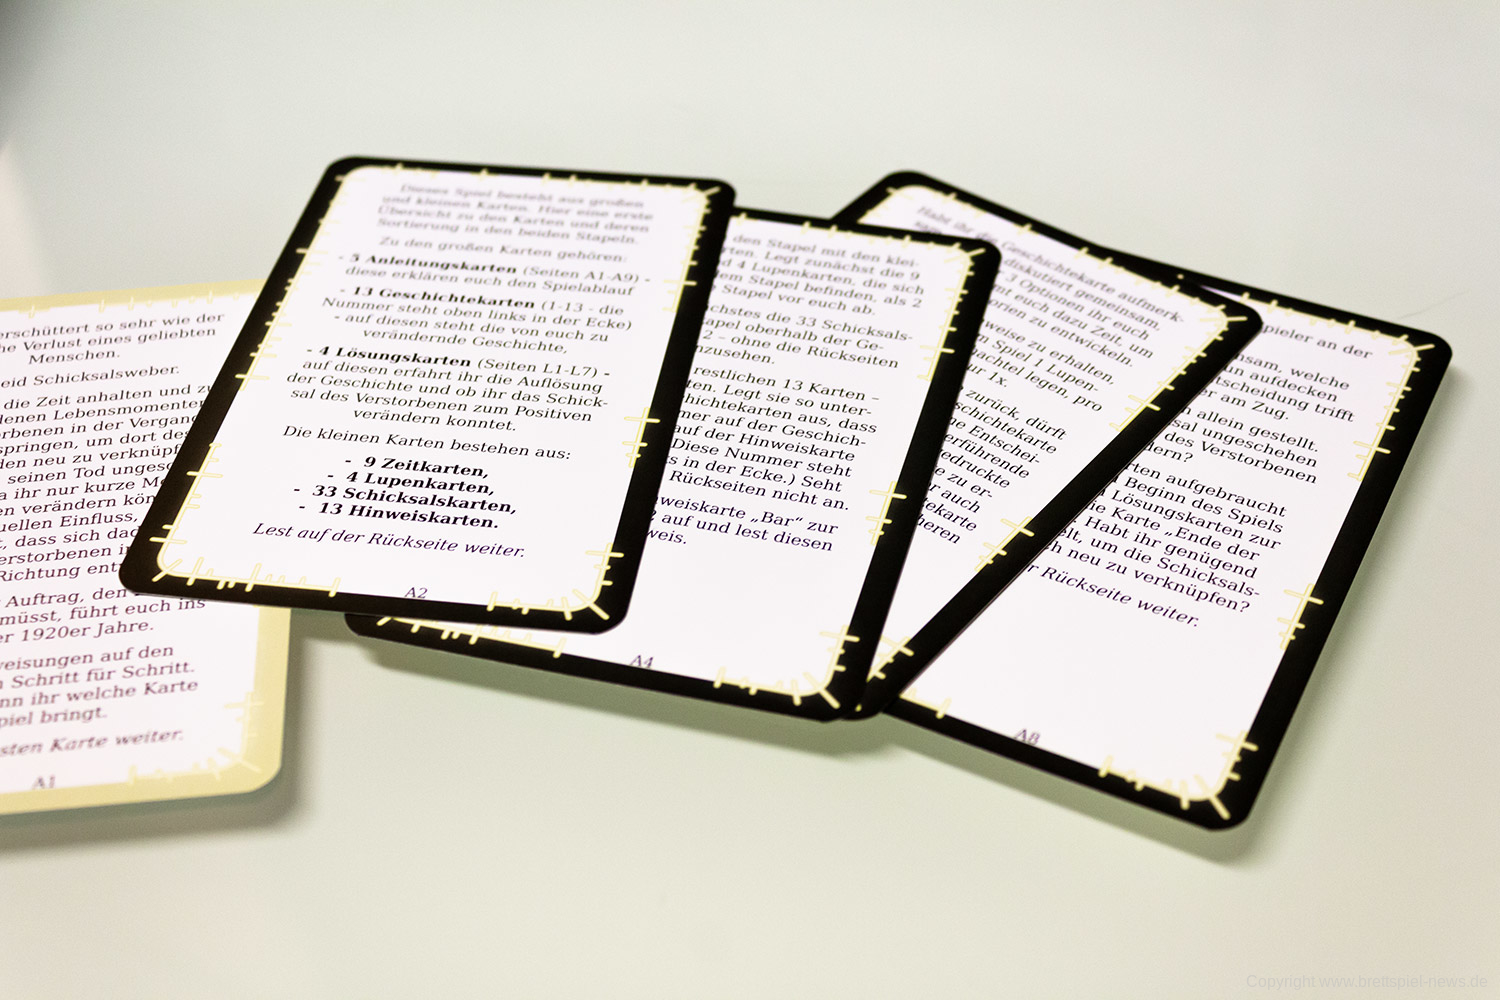 erschüttert so sehr wie der
he Verlust eines geliebten
Menschen.
eid Schicksalsweber.
die Zeit anhalten und zu
denen Lebensmomenten
rbenen in der Vergang
springen, um dort des
den neu zu verknüpf
seinen Tod unges
a ihr nur kurze Mo
en verändern kön
uellen Einfluss,
t, dass sich dad
erstorbenen in
Richtung ent
Auftrag, den
müsst, führt euch ins
er 1920er Jahre.
weisungen auf den
n Schritt für Schritt.
nn ihr welche Karte
piel bringt.
sten Karte weiter.
A1
Dieses Spiel besteht aus großen
und kleinen Karten. Hier eine erste
Übersicht zu den Karten und deren
Sortierung in den beiden Stapeln.
Zu den großen Karten gehören:
- 5 Anleitungskarten (Seiten A1-A9) -
diese erklären euch den Spielablauf
- 13 Geschichtekarten (1-13 - die
Nummer steht oben links in der Ecke)
- auf diesen steht die von euch zu
verändernde Geschichte,
- 4 Lösungskarten (Seiten L1-L7) -
auf diesen erfahrt ihr die Auflösung
der Geschichte und ob ihr das Schick-
sal des Verstorbenen zum Positiven
verändern konntet.
Die kleinen Karten bestehen aus:
- 9 Zeitkarten,
- 4 Lupenkarten,
- 33 Schicksalskarten,
- 13 Hinweiskarten.
Lest auf der Rückseite weiter.
A2
den Stapel mit den klei-
rten. Legt zunächst die 9
d 4 Lupenkarten, die sich
dem Stapel befinden, als 2
Stapel vor euch ab.
chstes die 33 Schicksals-
apel oberhalb der Ge-
2 – ohne die Rückseiten
nzusehen.
restlichen 13 Karten –
ten. Legt sie so unter-
hichtekarten aus, dass
mer auf der Geschich-
auf der Hinweiskarte
Diese Nummer steht
s in der Ecke.) Seht
Rückseiten nicht an.
weiskarte „Bar“ zur
2 auf und lest diesen
weis.
A4
Habt ihr die Geschichtekarte aufmerk-
diskutiert gemeinsam,
3 Optionen ihr euch
mt euch dazu Zeit, um
orien zu entwickeln.
weise zu erhalten,
n Spiel 1 Lupen-
achtel legen, pro
ur 1x.
zurück, dürft
schichtekarte
ne Entschei-
erführende
edruckte
e zu er-
r auch
tekarte
heren
pieler an der
nsam, welche
un aufdecken
tscheidung trifft
er am Zug.
n allein gestellt.
sal ungeschehen
des Verstorbenen
dern?
rten aufgebraucht
Beginn des Spiels
Lösungskarten zur
ie Karte „Ende der
. Habt ihr genügend
elt, um die Schicksals-
ch neu zu verknüpfen?
r Rückseite weiter.
A8
Copyright www.brettspiel-news.de